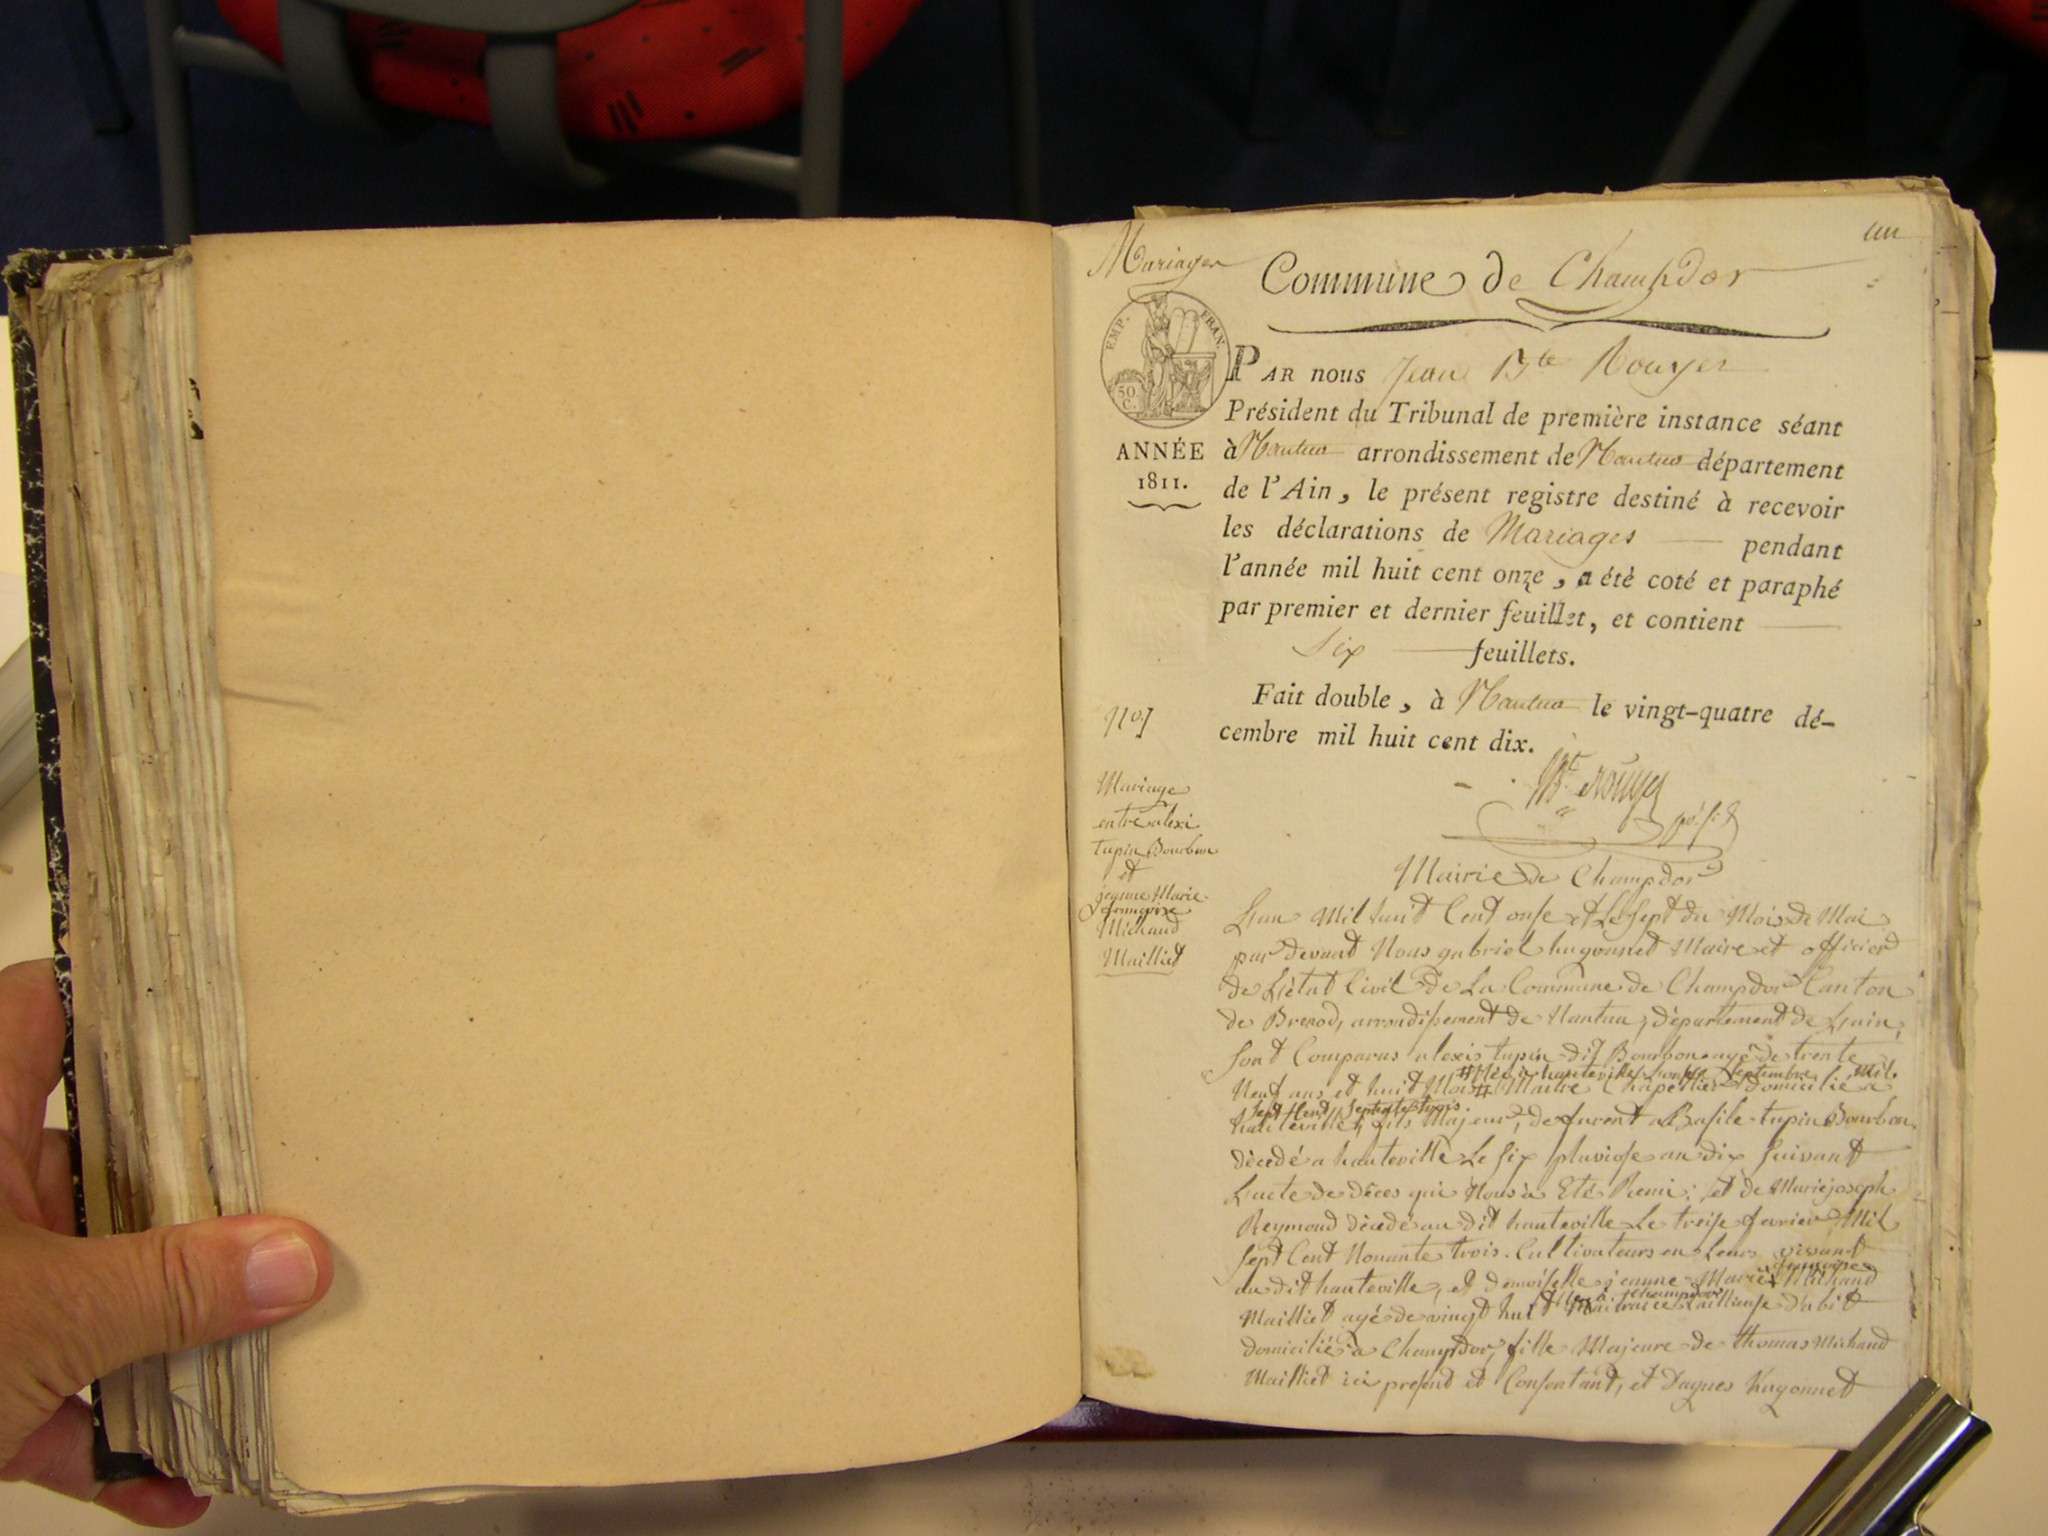 un
Mariages
Commune de Champdor
EMP. FRAN.
50 C.
PAR nous Jean Bte Rouyer
Président du Tribunal de première instance séant
ANNÉE
1811.
à Nantua arrondissement de Nantua département
de l'Ain, le présent registre destiné à recevoir
les déclarations de Mariages pendant
l'année mil huit cent onze, a été coté et paraphé
par premier et dernier feuillet, et contient
Six feuillets.
Fait double, à Nantua le vingt-quatre dé-
cembre mil huit cent dix.
Bte Rouyer
No. 1
Mariage
entre alexi
tupin Bourbon
et
jeanne Marie
francoise
Michaud
Mailliet
Mairie de Champdor
Lan Mil huit Cent onse et Le Sept du Mois de Mai
par devant Nous gabriel hugonnet Maire et officier
de Létat Civil de La Commune de Champdor Canton
de Brenod, arrondissement de Nantua, département de Lain,
Sont Comparus alexis tupin dit Bourbon agé de trente
Neuf ans et huit Mois # Maitre Chapellier domicilié a
# Née a hauteville Septembre Mil.
Sept Cent Septente trois.
hauteville, fils Majeur, de furent Basile tupin Bourbon
décedé a hauteville Le Six pluviose an dix Suivant
Lacte de déces qui Nous à Eté Remi; et de Marie joseph
Reymond décedé au dit hauteville Le treise fevrier Mil
Sept Cent Nonante trois. Cultivateurs en Leurs vivant
au dit hauteville, et demoiselle jeanne Marie francoise Michaud
Mailliet agé de vingt huit Née à Champdor tailleuse d'abit
domicilié à Champdor, fille Majeure de thomas Michaud
Mailliet ici present et Consentant, et Dagnes hugonnet